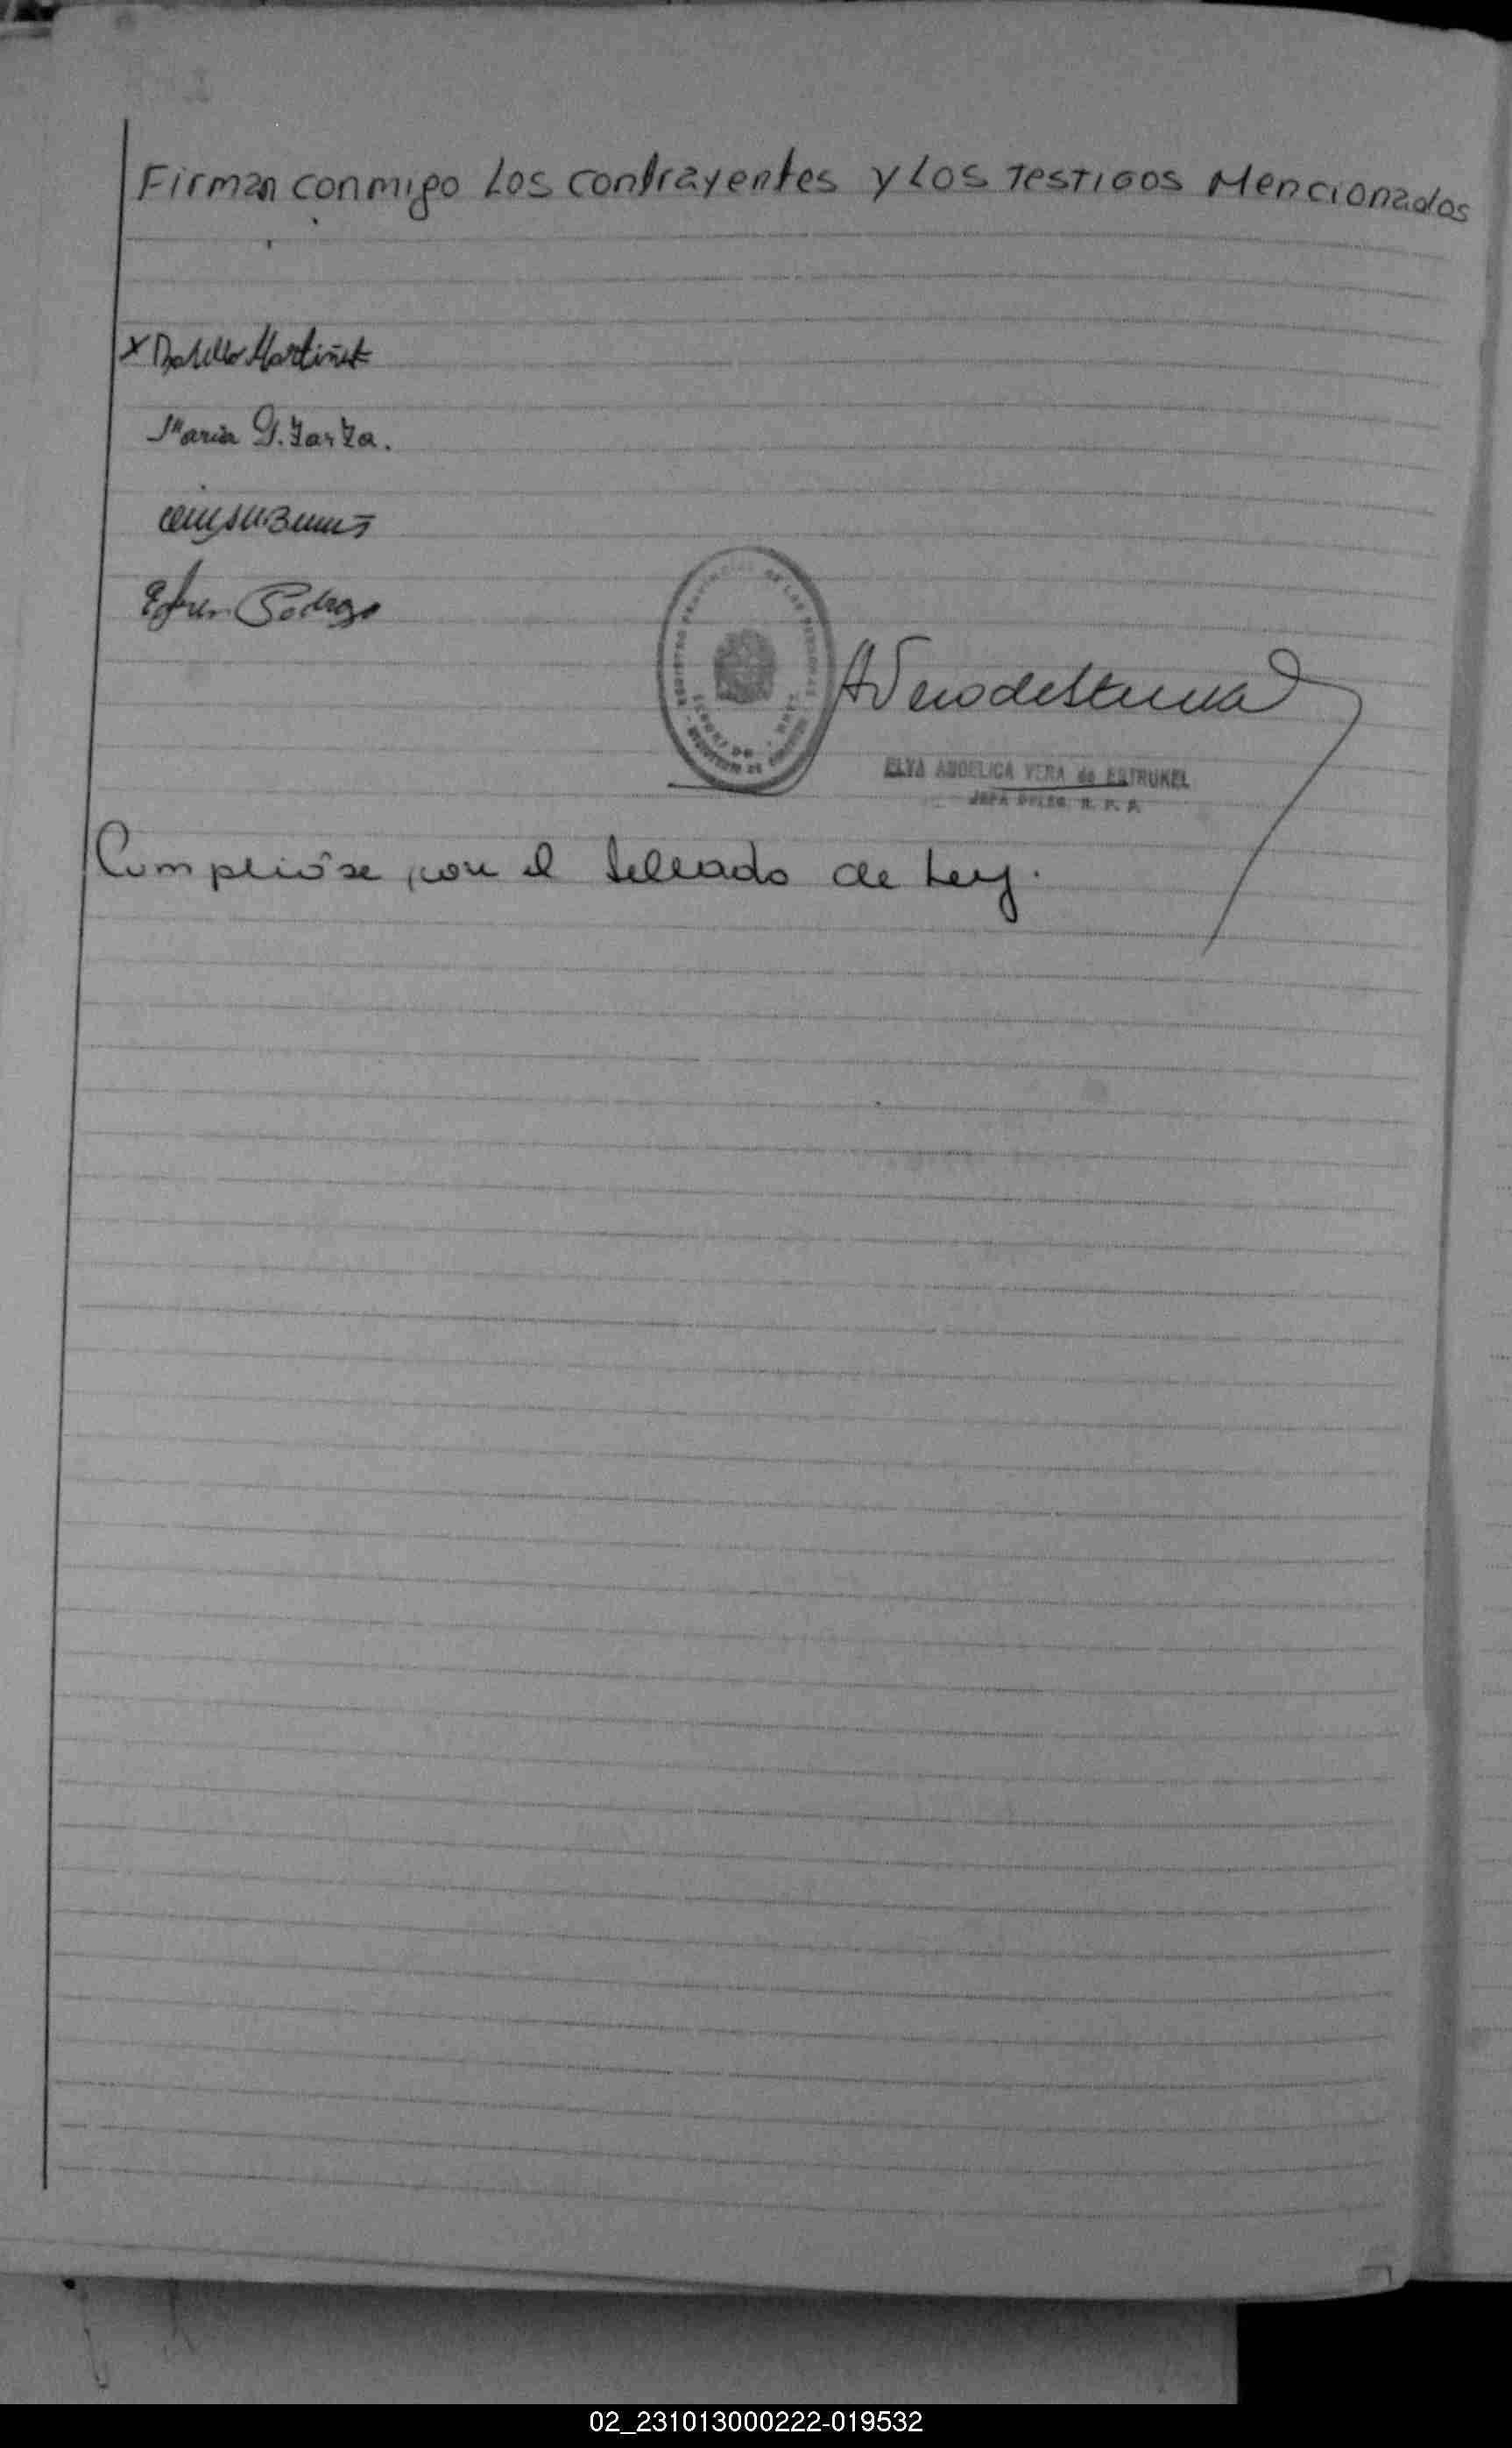 Firman conmigo Los contrayentes y Los Testigos Mencionados
x Martinez
Maria G. Zarza.
Efren Pedrozo
REGISTRO PROVINCIAL DE LAS PERSONAS
ELYA ANGELICA VERA de ESTRUKEL
JEFA DELEG. R. P. P.
Cumplióse con el Sellado de Ley.
02_231013000222-019532